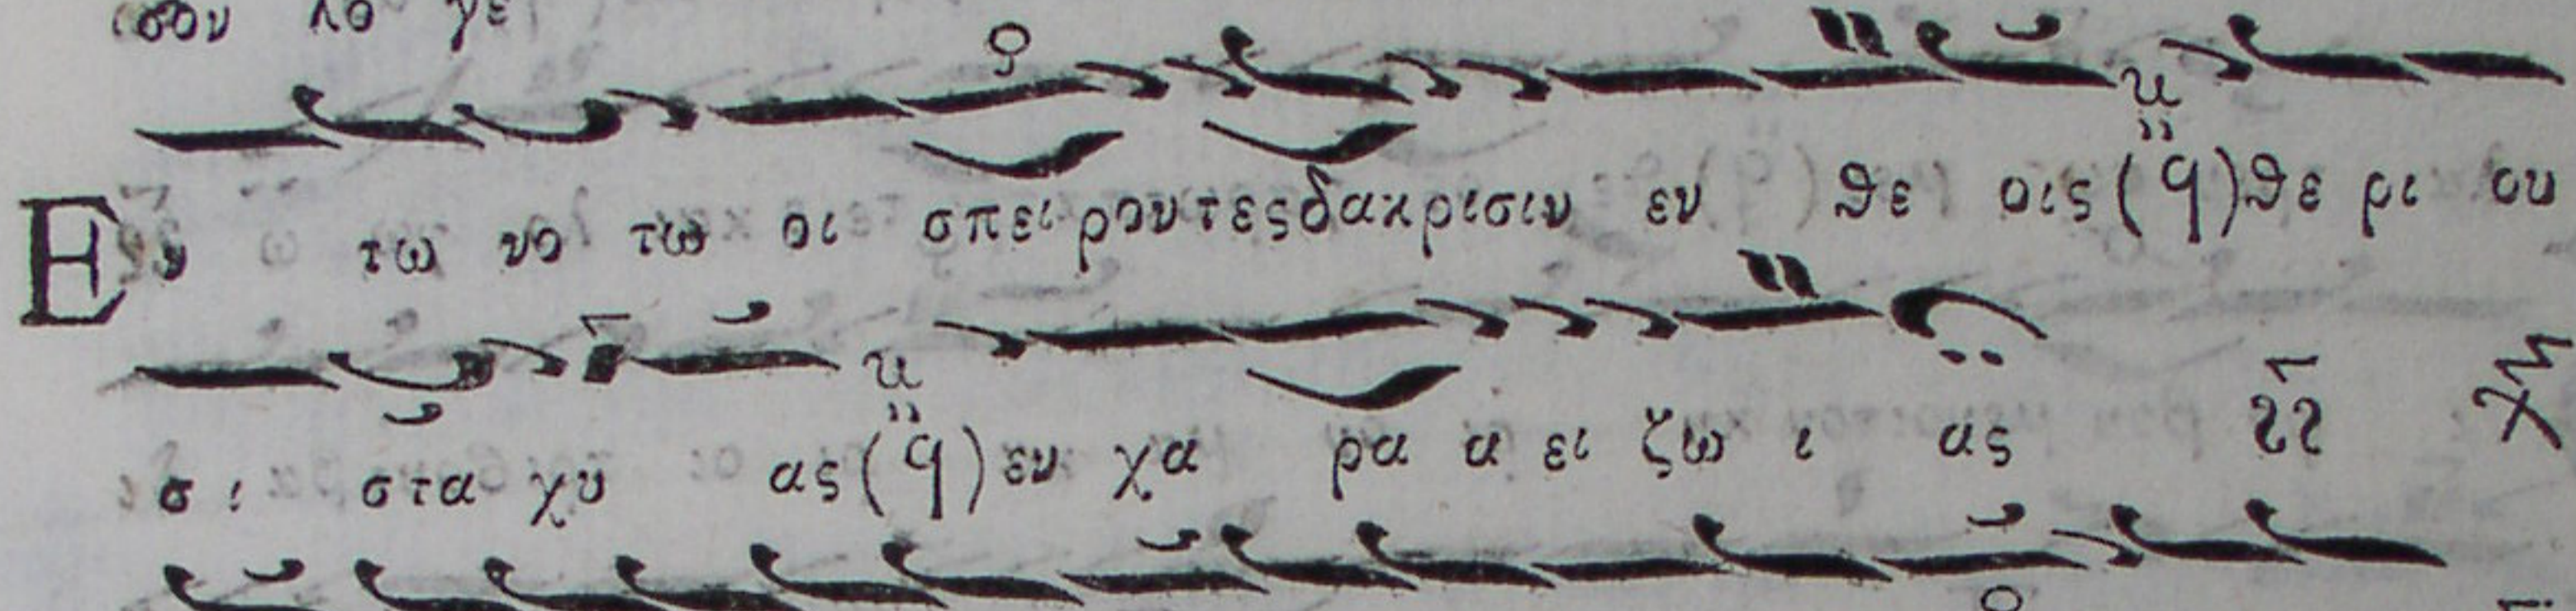 σου λο γε
Εν τω νο τω οι σπει ροντες δακρισιν εν θε οις (q) θε ρι ου
σι στα χυ ας (q) εν χα ρα α ει ζω ι ας